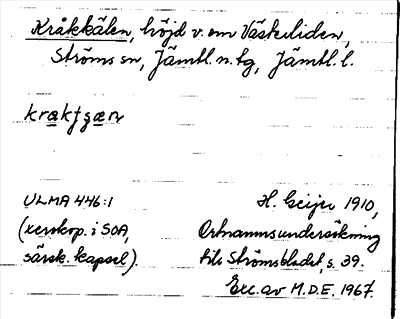 Kråkkälen, höjd v. om Väskiliden,
Ströms sn, Jämtl. n. tg, Jämtl. l.
krakʃʒæn
ULMA 446:1
H. Geijer 1910,
(xerokop. i SOA,
Ortnamnsundersökning
särsk. kapsel).
till Strömsbladet, s. 39.
Exc. av M.D.E. 1967.